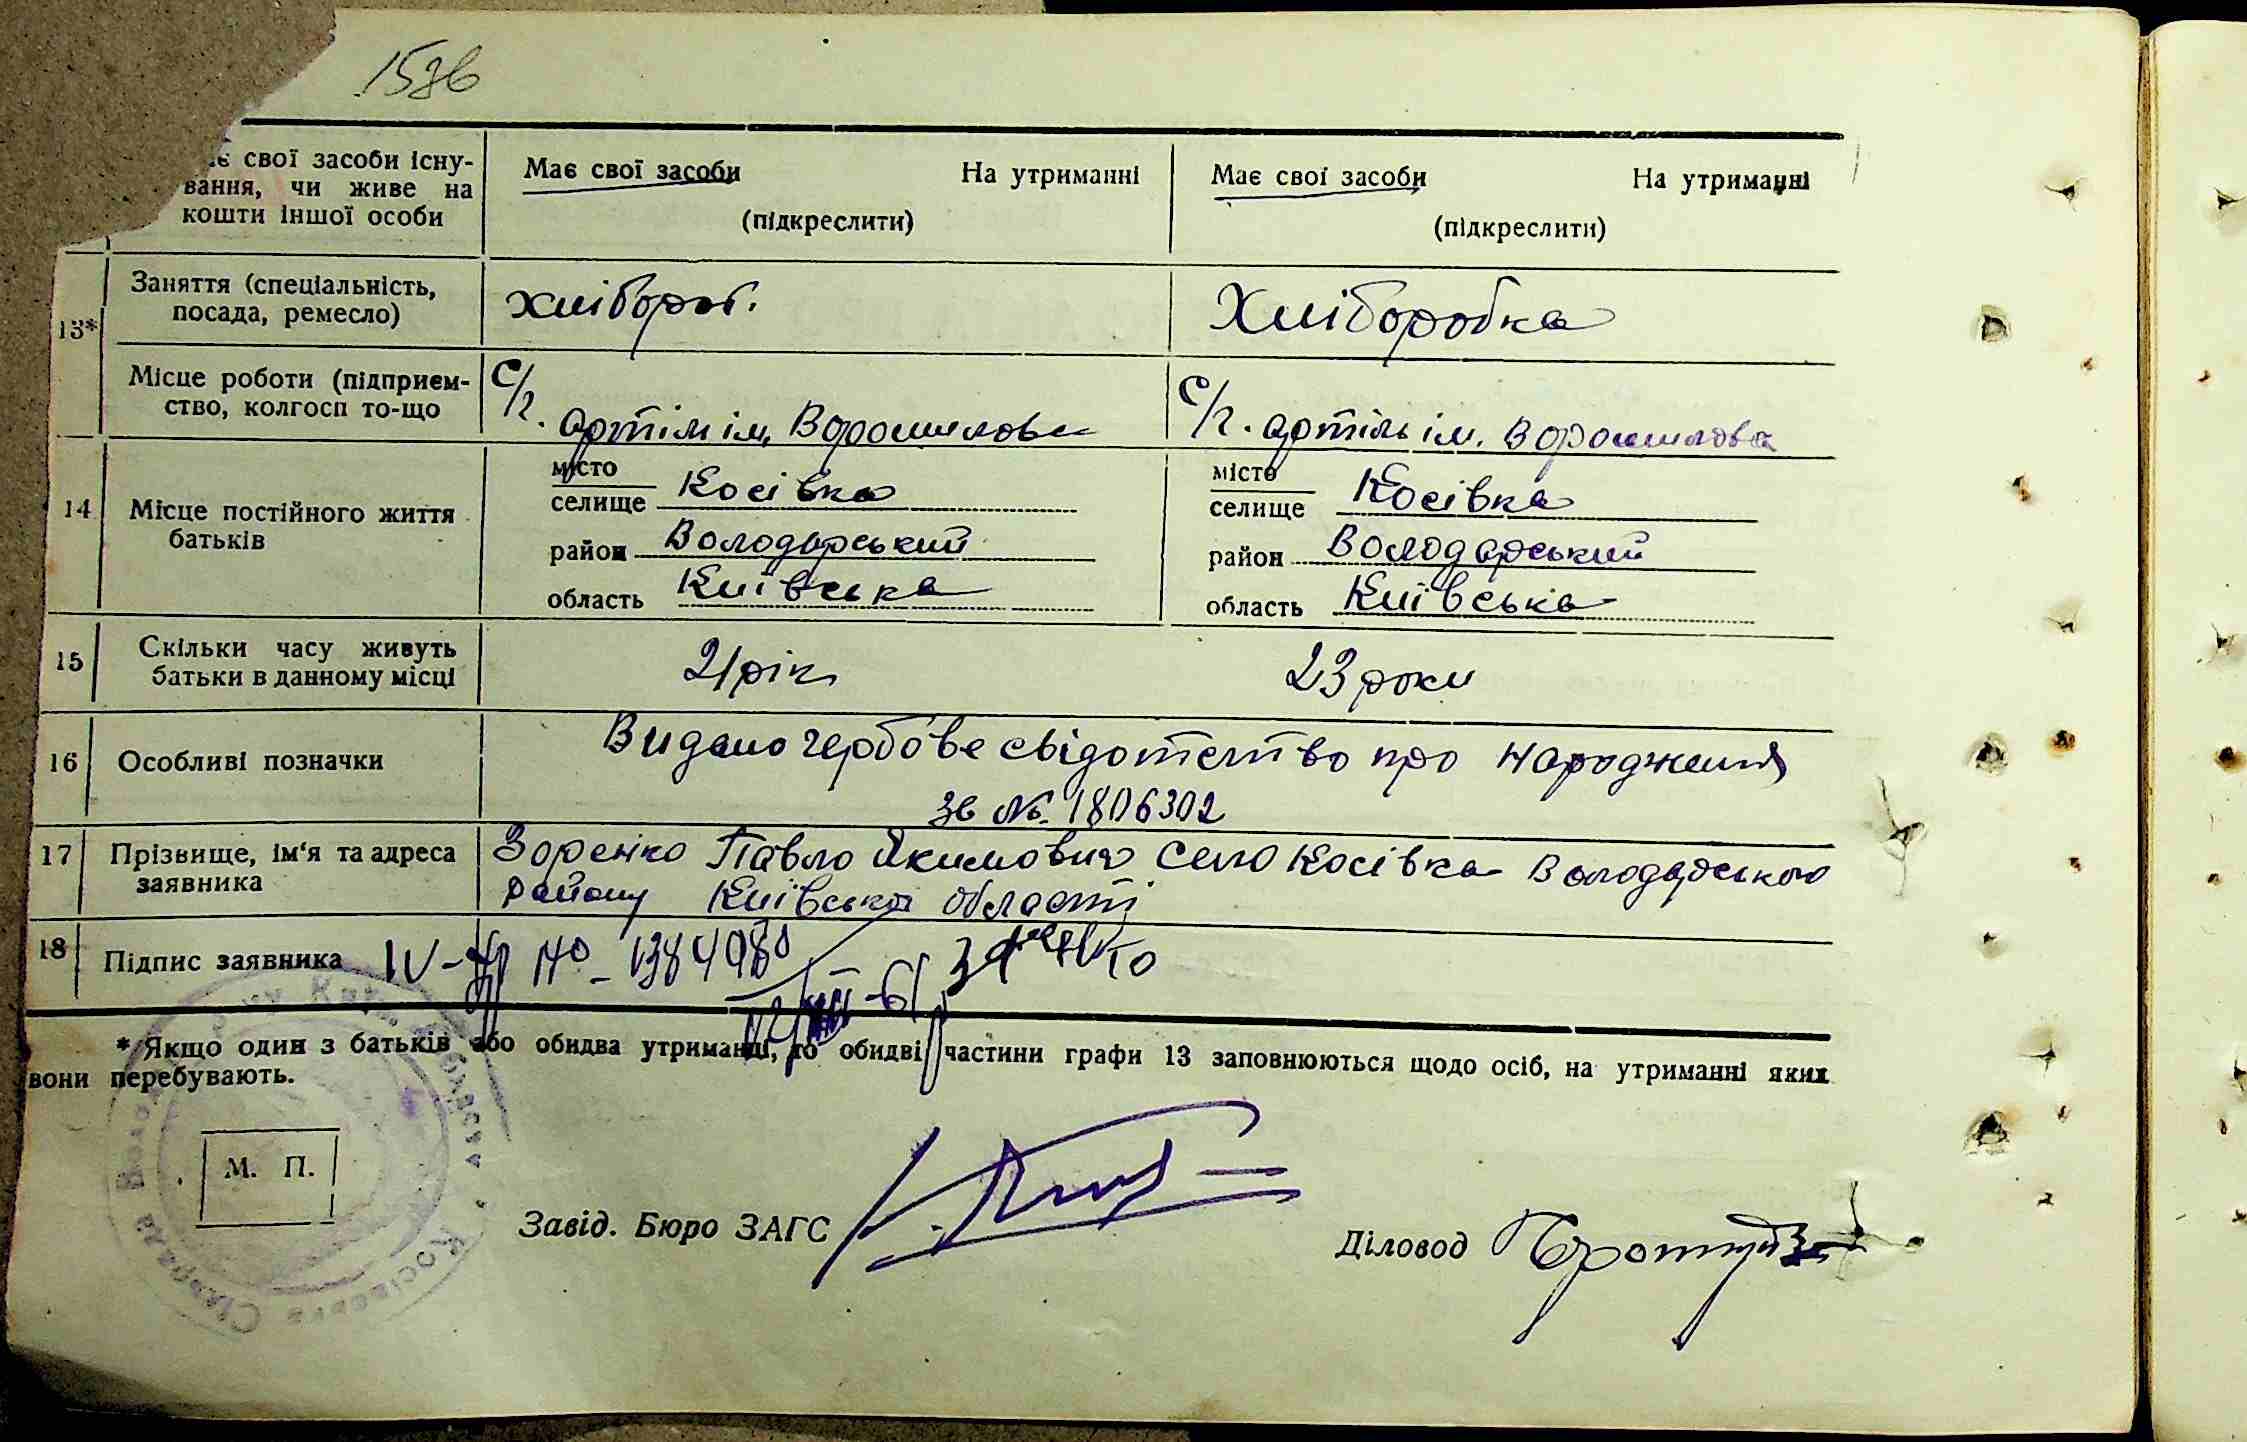 153б
є свої засоби існу-
вання, чи живе на
кошти іншої особи
Має свої засоби На утриманні
(підкреслити)
Має свої засоби На утриманні
(підкреслити)
13*
Заняття (спеціальність,
посада, ремесло)
хлібороб.
Хліборобка
Місце роботи (підприєм-
ство, колгосп то-що
С/г. артіль ім. Ворошилова
С/г. артіль ім. Ворошилова
14
Місце постійного життя
батьків
місто
селище Косівка
район Володарський
область Київська
місто
селище Косівка
район Володарський
область Київська
15
Скільки часу живуть
батьки в данному місці
21 рік
23 роки
16
Особливі позначки
Видано гербове свідотство про народження
зв №. 1806302
17
Прізвище, ім'я та адреса
заявника
Зоренко Павло Якимович село Косівка Володарського
району Київської області
18
Підпис заявника
* Якщо один з батьків або обидва утриманці, то обидві частини графи 13 заповнюються щодо осіб, на утриманні яких
вони перебувають.
М. П.
Завід. Бюро ЗАГС
Діловод